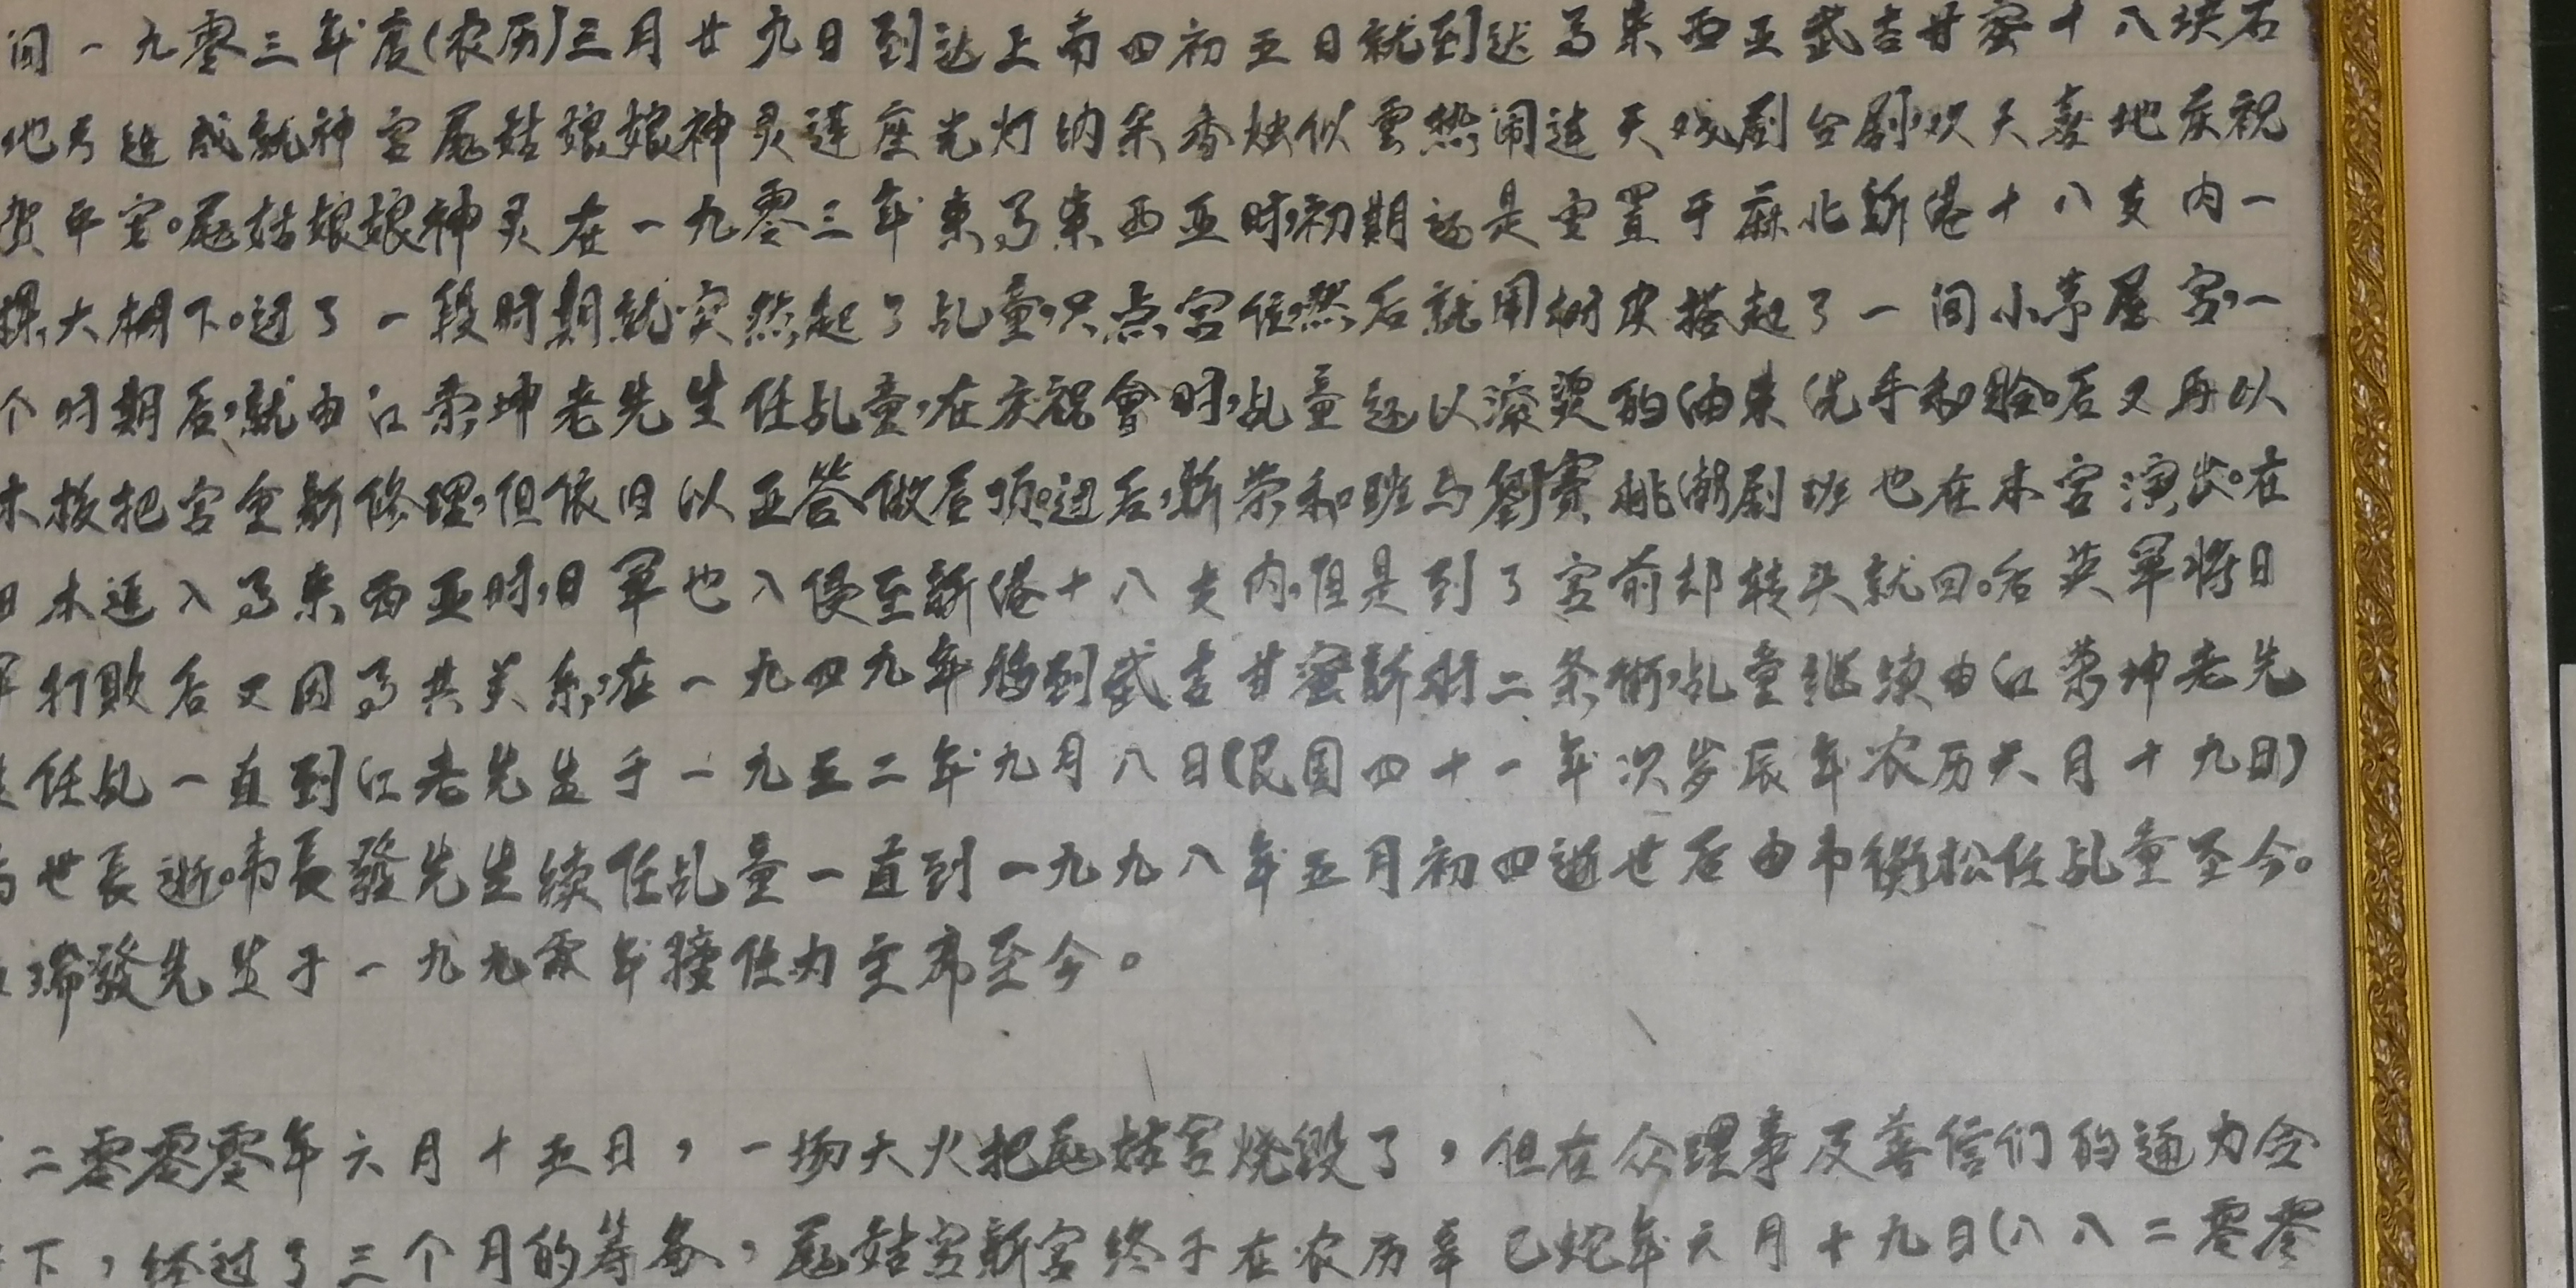 间一九零三年度(农历)三月廿九日到达上南四初五日就到达马来西亚武吉甘蜜十八块石
地方建成就神宫尾姑娘娘神灵莲座光灯纳采香烛似雲热闹连天戏剧台剧欢天喜地庆祝
贺平安。尾姑娘娘神灵在一九零三年来马来西亚时,初期还是安置于麻北新港十八支内一
棵大树下。过了一段时期就突然起了乩童,只点宫位,然后就用树皮搭起了一间小茅屋宫,一
个时期后,就由江荣坤老先生任乩童,在庆祝會时,乩童还以滚烫的油来洗手和脸。后又再以
木板把宫重新修理,但依旧以亚答做屋顶。过后,新荣和班与劉賽桃潮剧班也在本宫演出。在
日本进入马来西亚时,日軍也入侵至新港十八支内,但是到了宫前却转头就回。后英軍将日
軍打败后又因马共关系,在一九四九年移到武吉甘蜜新村二条街,乩童继续由江荣坤老先
任乩一直到江老先生于一九五二年九月八日(民国四十一年次岁辰年农历六月十九日)
与世長逝。韦長發先生续任乩童一直到一九九八年五月初四逝世后由韦衡松任乩童至今。
瑞發先生于一九九零年接任为主席至今。
二零零零年六月十五日,一场大火把尾姑宫烧毁了,但在众理事及善信们的通力合
下,经过了三个月的筹备,尾姑宫新宫终于在农历辛巳蛇年六月十九日(八八二零零